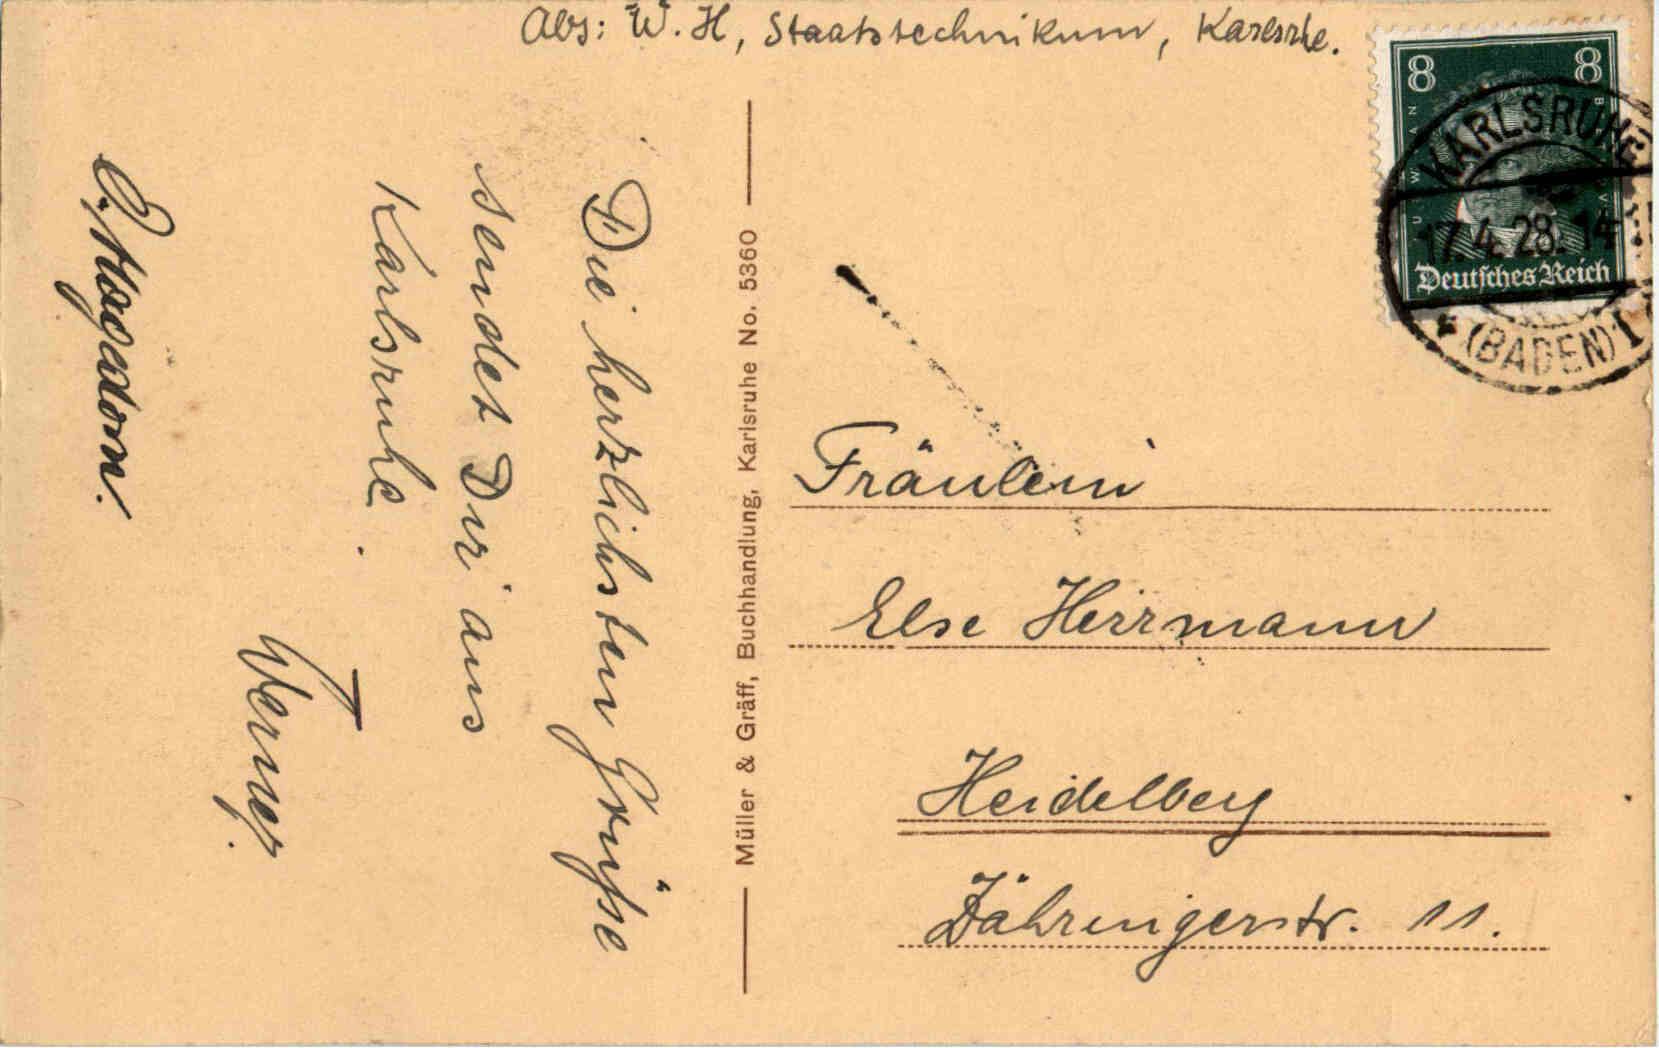 Abs: W. H, Staatstechnikum, Karlsruhe.
Die herzlichsten Grüße
sendet Dir aus
Karlsruhe.
Werner.
Hagedorn.
Müller & Gräff, Buchhandlung, Karlsruhe No. 5360
8 8
Deutsches Reich
KARLSRUHE
17.4.28.14
(BADEN) 1
Fräulein
Else Herrmann
Heidelberg
Zähringerstr. 11.